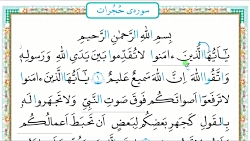 سوره‌ی حُجُرات
بِسمِ اللهِ الرَّحمٰنِ الرَّحيمِ
يٰٓاَيُّهَا الَّذينَ ءامَنوا لا تُقَدِّموا بَينَ يَدَيِ اللهِ وَ رَسولِهٖ
وَ اتَّقُوا اللهَ اِنَّ اللهَ سَميعٌ عَليمٌ ١ يٰٓاَيُّهَا الَّذينَ ءامَنوا
لا تَرفَعوٓا اَصواتَكُم فَوقَ صَوتِ النَّبِيِّ وَ لا تَجهَروا لَهٗ
بِالقَولِ كَجَهرِ بَعضِكُم لِبَعضٍ اَن تَحبَطَ اَعمالُكُم